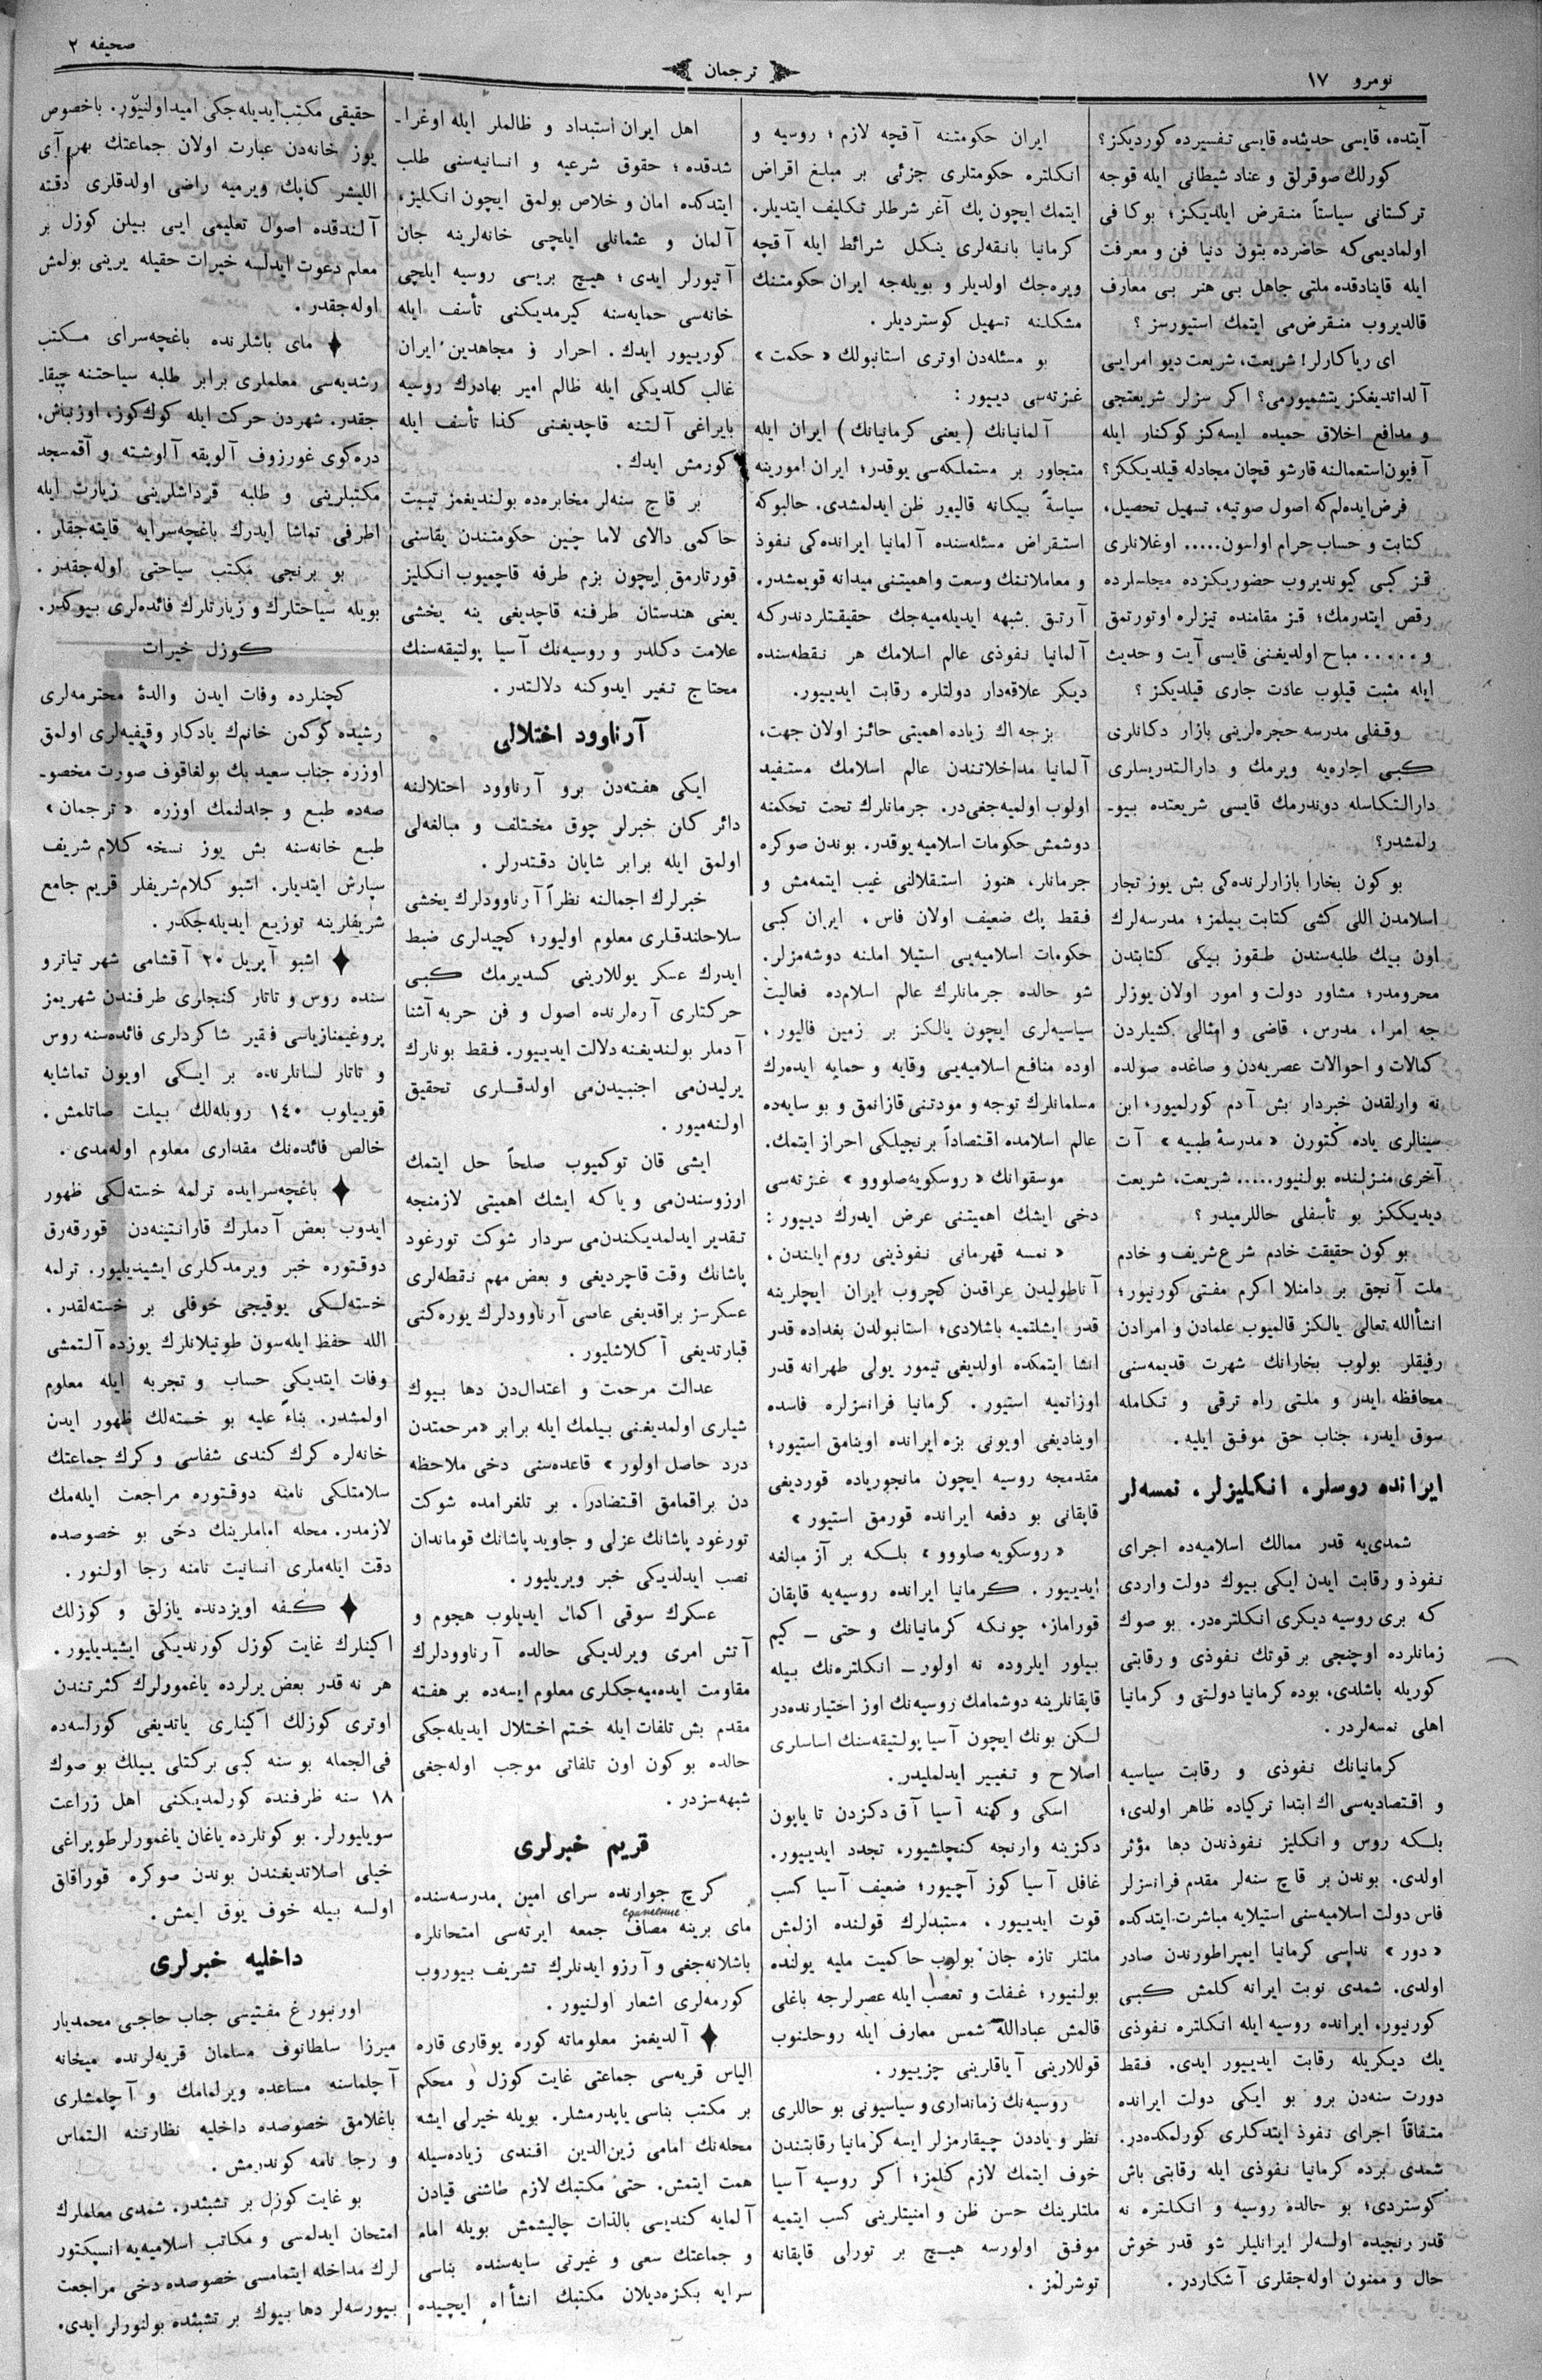 نومرو ١٧
ترجمان
صحیفه ٢
آیتده، قایسی حدیثده قایسی تفسیرده كوردیكز؟
كورلك صوقرلق و عناد شیطانی ایله قوجه
تركستانی سیاستاً منقرض ایلدیكز؛ بو كافی
اولمادیمی كه حاضرده بتون دنیا فن و معرفت
ایله قاینادقده ملتی جاهل بی هنر بی معارف
قالدیروب منقرض‌می ایتمك استیورسز ؟
ای ریاكارلر! شریعت، شریعت دیو امرایی
آلداتدیغكز یتشمیورمی؟ اكر سزلر شریعتجی
و مدافع اخلاق حمیده ایسه‌كز كوكنار ایله
آفیون استعمالنه قارشو قچان مجادله قیلدیككز؟
فرض ایده‌لم كه اصول صوتیه، تسهیل تحصیل،
كتابت و حساب حرام اولسون..... اوغلانلری
قز كبی كیوندیروب حضوریكزده مجلسلرده
رقص ایتدرمك؛ قز مقامنده تیزلره اوتورتمق
و ..... مباح اولدیغنی قایسی آیت و حدیث
ایله مثبت قیلوب عادت جاری قیلدیكز ؟
وقفلی مدرسه حجره‌لرینی بازار دكانلری
كبی اجاره‌یه ویرمك و دارالتدریسلری
دارالتكاسله دوندرمك قایسی شریعتده بیو-
رلمشدر؟
بو كون بخارا بازارلرنده‌كی بش یوز تجار
اسلامدن اللی كشی كتابت بیلمز؛ مدرسه‌لرك
اون بیك طلبه‌سندن طقوز بیكی كتابتدن
محرومدر؛ مشاور دولت و امور اولان یوزلر
جه امرا، مدرس، قاضی و امثالی كشیلردن
كمالات و احوالات عصریه‌دن و صاغده صولده
نه وارلقدن خبردار بش آدم كورلمیور، ابن
سینالری یاده كتورن « مدرسهٔ طبیه » آت
آخری منزلنده بولنیور..... شریعت، شریعت
دیدیككز بو تأسفلی حاللرمیدر ؟
بو كون حقیقت خادم شرع شریف و خادم
ملت آنجق بر داملا اكرم مفتی كورنیور؛
انشأالله تعالی یالكز قالمیوب علمادن و امرادن
رفیقلر بولوب بخارانك شهرت قدیمه‌سنی
محافظه ایدر و ملتی راه ترقی و تكامله
سوق ایدر، جناب حق موفق ایلیه.
ایرانده روسلر، انكلیزلر، نمسه‌لر
شمدی‌یه قدر ممالك اسلامیه‌ده اجرای
نفوذ و رقابت ایدن ایكی بیوك دولت واردی
كه بری روسیه دیكری انكلتره‌در. بو صوك
زمانلرده اوچنجی بر قوتك نفوذی و رقابتی
كوریله باشلدی، بوده كرمانیا دولتی و كرمانیا
اهلی نمسه‌لردر.
كرمانیانك نفوذی و رقابت سیاسیه
و اقتصادیه‌سی اك ابتدا تركیاده ظاهر اولدی؛
بلكه روس و انكلیز نفوذندن دها مؤثر
اولدی. بوندن بر قاچ سنه‌لر مقدم فرانسزلر
فاس دولت اسلامیه‌سنی استیلایه مباشرت ایتدكده
« دور » نداسی كرمانیا ایمپراطورندن صادر
اولدی. شمدی نوبت ایرانه كلمش كبی
كورنیور، ایرانده روسیه ایله انكلتره نفوذی
یك دیكریله رقابت ایدییور ایدی. فقط
دورت سنه‌دن برو بو ایكی دولت ایرانده
متفاقاً اجرای نفوذ ایتدكلری كورلمكده‌در.
شمدی برده كرمانیا نفوذی ایله رقابتی باش
كوستردی؛ بو حالده روسیه و انكلتره نه
قدر رنجیده اولسه‌لر ایرانلیلر شو قدر خوش
حال و ممنون اوله‌جقلری آشكاردر.
ایران حكومتنه آقچه لازم ؛ روسیه و
انكلتره حكومتلری جزئی بر مبلغ اقراض
ایتمك ایچون پك آغر شرطلر تكلیف ایتدیلر.
كرمانیا بانقه‌لری ینكل شرائط ایله آقچه
ویره‌جك اولدیلر و بویله‌جه ایران حكومتنك
مشكلنه تسهیل كوستردیلر.
بو مسئله‌دن اوتری استانبولك « حكمت »
غزته‌سی دییور :
آلمانیانك (یعنی كرمانیانك) ایران ایله
متجاور بر مستملكه‌سی یوقدر؛ ایران امورینه
سیاسةً بیكانه قالیور ظن ایدلمشدی. حالبوكه
استقراض مسئله‌سنده آلمانیا ایرانده‌كی نفوذ
و معاملاتنك وسعت و اهمیتنی میدانه قویمشدر.
آرتق شبهه ایدیله‌میه‌جك حقیقتلردندركه
آلمانیا نفوذی عالم اسلامك هر نقطه‌سنده
دیكر علاقه‌دار دولتلره رقابت ایدییور.
بزجه اك زیاده اهمیتی حائز اولان جهت،
آلمانیا مداخلاتندن عالم اسلامك مستفید
اولوب اولمیه‌جغی‌در. جرمانلرك تحت تحكمنه
دوشمش حكومات اسلامیه یوقدر. بوندن صوكره
جرمانلر، هنوز استقلالنی غیب ایتمه‌مش و
فقط پك ضعیف اولان فاس، ایران كبی
حكومات اسلامیه‌یی استیلا املنه دوشه‌مزلر.
شو حالده جرمانلرك عالم اسلام‌ده فعالیت
سیاسیه‌لری ایچون یالكز بر زمین قالیور.
اوده منافع اسلامیه‌یی وقایه و حمایه ایده‌رك
مسلمانلرك توجه و مودتنی قازانمق و بو سایه‌ده
عالم اسلامده اقتصاداً برنجیلكی احراز ایتمك.
موسقوانك « روسكویه‌صلووو » غزته‌سی
دخی ایشك اهمیتنی عرض ایدرك دییور :
« نمسه قهرمانی نفوذینی روم ایلندن،
آناطولیدن عراقدن كچروب ایران ایچلرینه
قدر ایشلتمیه باشلادی؛ استانبولدن بغداده قدر
انشا ایتمكده اولدیغی تیمور یولی طهرانه قدر
اوزاتمیه استیور. كرمانیا فرانسزلره فاسده
اوینادیغی اویونی بزه ایرانده اوینامق استیور؛
مقدمجه روسیه ایچون مانجوریاده قوردیغی
قاپقانی بو دفعه ایرانده قورمق استیور »
« روسكویه صلووو » بلكه بر آز مبالغه
ایدییور. كرمانیا ایرانده روسیه‌یه قاپقان
قوراماز، چونكه كرمانیانك و حتی – كیم
بیلور ایلروده نه اولور – انكلتره‌نك بیله
قاپقانلرینه دوشمامك روسیه‌نك اوز اختیارنده‌در
لكن بونك ایچون آسیا پولتیقه‌سنك اساسلری
اصلاح و تغییر ایدلملیدر.
اسكی و كهنه آسیا آق دكزدن تا یاپون
دكزینه وارنجه كنچلشیور، تجدد ایدییور.
غافل آسیا كوز آچیور؛ ضعیف آسیا كسب
قوت ایدییور. مستبدلرك قولنده ازلمش
ملتلر تازه جان بولوب حاكمیت ملیه یولنده
بولنیور؛ غفلت و تعصب ایله عصرلرجه باغلی
قالمش عبادالله شمس معارف ایله روحلنوب
قوللارینی آیاقلرینی چزییور.
روسیه‌نك زمانداری و سیاسیونی بو حاللری
نظر و یاددن چیقارمزلر ایسه كرمانیا رقابتندن
خوف ایتمك لازم كلمز؛ اكر روسیه آسیا
ملتلرینك حسن ظن و امنیتلرینی كسب ایتمیه
موفق اولورسه هیچ بر تورلی قاپقانه
توشرلمز.
اهل ایران استبداد و ظالملر ایله اوغرا-
شدقده ؛ حقوق شرعیه و انسانیه‌سنی طلب
ایتدكده امان و خلاص بولمق ایچون انكلیز،
آلمان و عثمانلی ایلچی خانه‌لرینه جان
آتیورلر ایدی ؛ هیچ بریسی روسیه ایلچی
خانه‌سی حمایه‌سنه كیرمدیكنی تأسف ایله
كورییور ایدك. احرار و مجاهدین ایران
غالب كلدیكی ایله ظالم امیر بهادرك روسیه
بایراغی آلتنه قاچدیغنی كذا تأسف ایله
كورمش ایدك.
بر قاچ سنه‌لر مخابره‌ده بولندیغمز تیبت
حاكمی دالای لاما چین حكومتندن یقاسنی
قورتارمق ایچون بزم طرفه قاچمیوب انكلیز
یعنی هندستان طرفنه قاچدیغی ینه یخشی
علامت دكلدر و روسیه‌نك آسیا پولتیقه‌سنك
محتاج تغیر ایدوكنه دلالتدر.
آرناوود اختلالی
ایكی هفته‌دن برو آرناوود اختلالنه
دائر كلن خبرلر چوق مختلف و مبالغه‌لی
اولمق ایله برابر شایان دقتدرلر.
خبرلرك اجمالنه نظراً آرناوودلرك یخشی
سلاحلندقلری معلوم اولیور؛ كچیدلری ضبط
ایدرك عسكر یوللارینی كسدیرمك كبی
حركتلری آره‌لرنده اصول و فن حربه آشنا
آدملر بولندیغنه دلالت ایدییور. فقط بونلرك
یرلیدن‌می اجنبیدن‌می اولدقلری تحقیق
اولنه‌میور.
ایشی قان توكمیوب صلحاً حل ایتمك
ارزوسندن‌می و یاكه ایشك اهمیتی لازمنجه
تقدیر ایدلمدیكندن‌می سردار شوكت تورغود
پاشانك وقت قاچردیغی و بعض مهم نقطه‌لری
عسكرسز براقدیغی عاصی آرناوودلرك یوره‌كنی
قبارتدیغی آكلاشلیور.
عدالت مرحمت و اعتدال‌دن دها بیوك
شیلری اولمدیغنی بیلمك ایله برابر « مرحمتدن
درد حاصل اولور » قاعده‌سنی دخی ملاحظه
دن براقمامق اقتضادر. بر تلغرامده شوكت
تورغود پاشانك عزلی و جاوید پاشانك قوماندان
نصب ایدلدیكی خبر ویریلیور.
عسكرك سوقی اكمال ایدیلوب هجوم و
آتش امری ویرلدیكی حالده آرناوودلرك
مقاومت ایده‌میه‌جكلری معلوم ایسه‌ده بر هفته
مقدم بش تلفات ایله ختم اختلال ایدیله‌جكی
حالده بو كون اون تلفاتی موجب اوله‌جغی
شبهه‌سزدر.
قریم خبرلری
كرچ جوارنده سرای امین مدرسه‌سنده
مای برینه مصاف جمعه ایرته‌سی امتحانلره
باشلانه‌جغی و آرزو ایدنلرك تشریف بیوروب
كورمه‌لری اشعار اولنیور.
آلدیغمز معلوماته كوره یوقاری قاره
الیاس قریه‌سی جماعتی غایت كوزل و محكم
بر مكتب بناسی یاپدرمشلر. بویله خیرلی ایشه
محله‌نك امامی زین‌الدین افندی زیاده‌سیله
همت ایتمش. حتی مكتبك لازم طاشنی قیادن
آلمایه كندیسی بالذات چالیشمش بویله امام
و جماعتك سعی و غیرتی سایه‌سنده بناسی
سرایه بكزه‌دیلان مكتبك انشأالله ایچیده
حقیقی مكتب ایدیله‌جكی امید اولنیور. باخصوص
یوز خانه‌دن عبارت اولان جماعتك بهر آی
اللیشر كاپك ویرمیه راضی اولدقلری دقته
آلندقده اصول تعلیمی ایی بیلن كوزل بر
معلم دعوت ایدلسه خیرات حقیله یرینی بولمش
اوله‌جقدر.
مای باشلرنده باغچه‌سرای مكتب
رشدیه‌سی معلملری برابر طلبه سیاحتنه چیقا-
جقدر. شهردن حركت ایله كوك‌كوز، اوزنباش،
دره‌كوی غورزوف آلوپقه آلوشته و آقمسجد
مكتبلرینی و طلبه قرداشلرینی زیارت ایله
اطرفی تماشا ایدرك باغچه‌سرایه قایته‌جقلر.
بو برنجی مكتب سیاحتی اوله‌جقدر.
بویله سیاحتلرك و زیارتلرك فائده‌لری بیوكدر.
كوزل خیرات
كچنلرده وفات ایدن والدهٔ محترمه‌لری
رشیده كوكمن خانم‌ك یادكار وقفیه‌لری اولمق
اوزره جناب سعید بك بولغاقوف صورت مخصو-
صه‌ده طبع و جلدلنمك اوزره « ترجمان »
طبع خانه‌سنه بش یوز نسخه كلام شریف
سپارش ایتدیلر. اشبو كلام‌شریفلر قریم جامع
شریفلرینه توزیع ایدیله‌جكدر.
اشبو آپریل ٢٠ آقشامی شهر تیاترو
سنده روس و تاتار كنجلری طرفندن شهریمز
پروغیمنازیاسی فقیر شاكردلری فائده‌سنه روس
و تاتار لسانلرنده بر ایكی اویون تماشایه
قوییلوب ١٤٠ روبله‌لك بیلت صاتلمش.
خالص فائده‌نك مقداری معلوم اوله‌مدی.
باغچه‌سرایده ترلمه خسته‌لكی ظهور
ایدوب بعض آدملرك قارانتینه‌دن قورقه‌رق
دوقتوره خبر ویرمدكلری ایشیدیلیور. ترلمه
خسته‌لكی یوقیجی خوفلی بر خسته‌لقدر.
الله حفظ ایله‌سون طوتیلانلرك یوزده آلتمشی
وفات ایتدیكی حساب و تجربه ایله معلوم
اولمشدر. بناءً علیه بو خسته‌لك ظهور ایدن
خانه‌لره كرك كندی شفاسی و كرك جماعتك
سلامتلكی نامنه دوقتوره مراجعت ایله‌مك
لازمدر. محله اماملرینك دخی بو خصوصده
دقت ایله‌ملری انسانیت نامنه رجا اولنور.
كفه اویزدنده یازلق و كوزلك
اكینلرك غایت كوزل كورندیكی ایشیدیلیور.
هر نه قدر بعض یرلرده یاغمورلرك كثرتندن
اوتری كوزلك اكینلری یاتدیغی كورلسه‌ده
فی‌الجمله بو سنه كبی بركتلی ییلك بو صوك
١٨ سنه ظرفنده كورلمدیكنی اهل زراعت
سویلیورلر. بو كونلرده یاغان یاغمورلر طوپراغی
خیلی اصلاتدیغندن بوندن صوكره قوراقلق
اولسه بیله خوف یوق ایمش.
داخلیه خبرلری
اورنبورغ مفتیسی جناب حاجی محمدیار
میرزا سلطانوف مسلمان قریه‌لرنده میخانه
آچلماسنه مساعده ویرلمامك و آچلمشلری
باغلامق خصوصده داخلیه نظارتنه التماس
و رجا نامه كوندرمش.
بو غایت كوزل بر تشبثدر. شمدی معلملرك
امتحان ایدلمسی و مكاتب اسلامیه‌یه انسپكتور
لرك مداخله ایتمامسی خصوصده دخی مراجعت
بیورسه‌لر دها بیوك بر تشبثده بولنورلر ایدی.